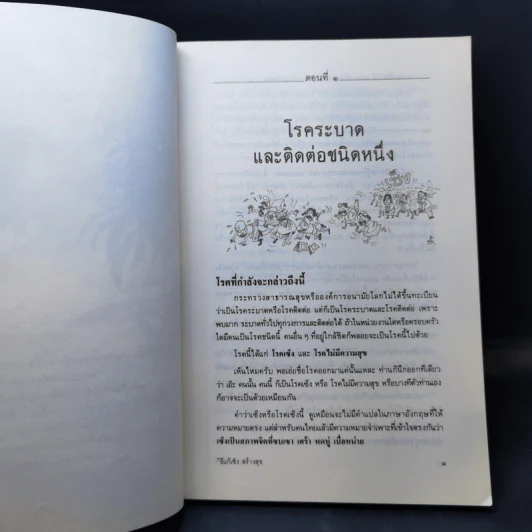 ตอนที่ ๑
โรคระบาด
และติดต่อชนิดหนึ่ง
เซ็ง
โรคที่กำลังจะกล่าวถึงนี้
กระทรวงสาธารณสุขหรือองค์การอนามัยโลกไม่ได้ขึ้นทะเบียน
ว่าเป็นโรคระบาดหรือโรคติดต่อ แต่ก็เป็นโรคระบาดและโรคติดต่อ เพราะ
พบมาก ระบาดทั่วไปทุกวงการและติดต่อได้ ถ้าในหน่วยงานใดหรือครอบครัว
ใดมีคนเป็นโรคชนิดนี้ คนอื่น ๆ ที่อยู่ใกล้ชิดก็พลอยจะเป็นโรคนี้ไปด้วย
โรคนี้ได้แก่ โรคเซ็ง และ โรคไม่มีความสุข
เห็นไหมครับ พอเอ่ยชื่อโรคออกมาแค่นั้นแหละ ท่านก็นึกออกทีเดียว
ว่า เอ๊ะ คนนั้น คนนี้ ก็เป็นโรคเซ็ง หรือ โรคไม่มีความสุข หรือบางทีตัวท่านเอง
ก็อาจจะเป็นด้วยเหมือนกัน
คำว่าเซ็งหรือโรคเซ็งนี้ ดูเหมือนจะไม่มีคำแปลในภาษาอังกฤษที่ให้
ความหมายตรง แต่สำหรับคนไทยแล้วมีความหมายจำเพาะที่เข้าใจตรงกันว่า
เซ็งเป็นสภาพจิตที่ซบเซา เศร้า หดหู่ เบื่อหน่าย
วิธีแก้เซ็ง สร้างสุข
๑